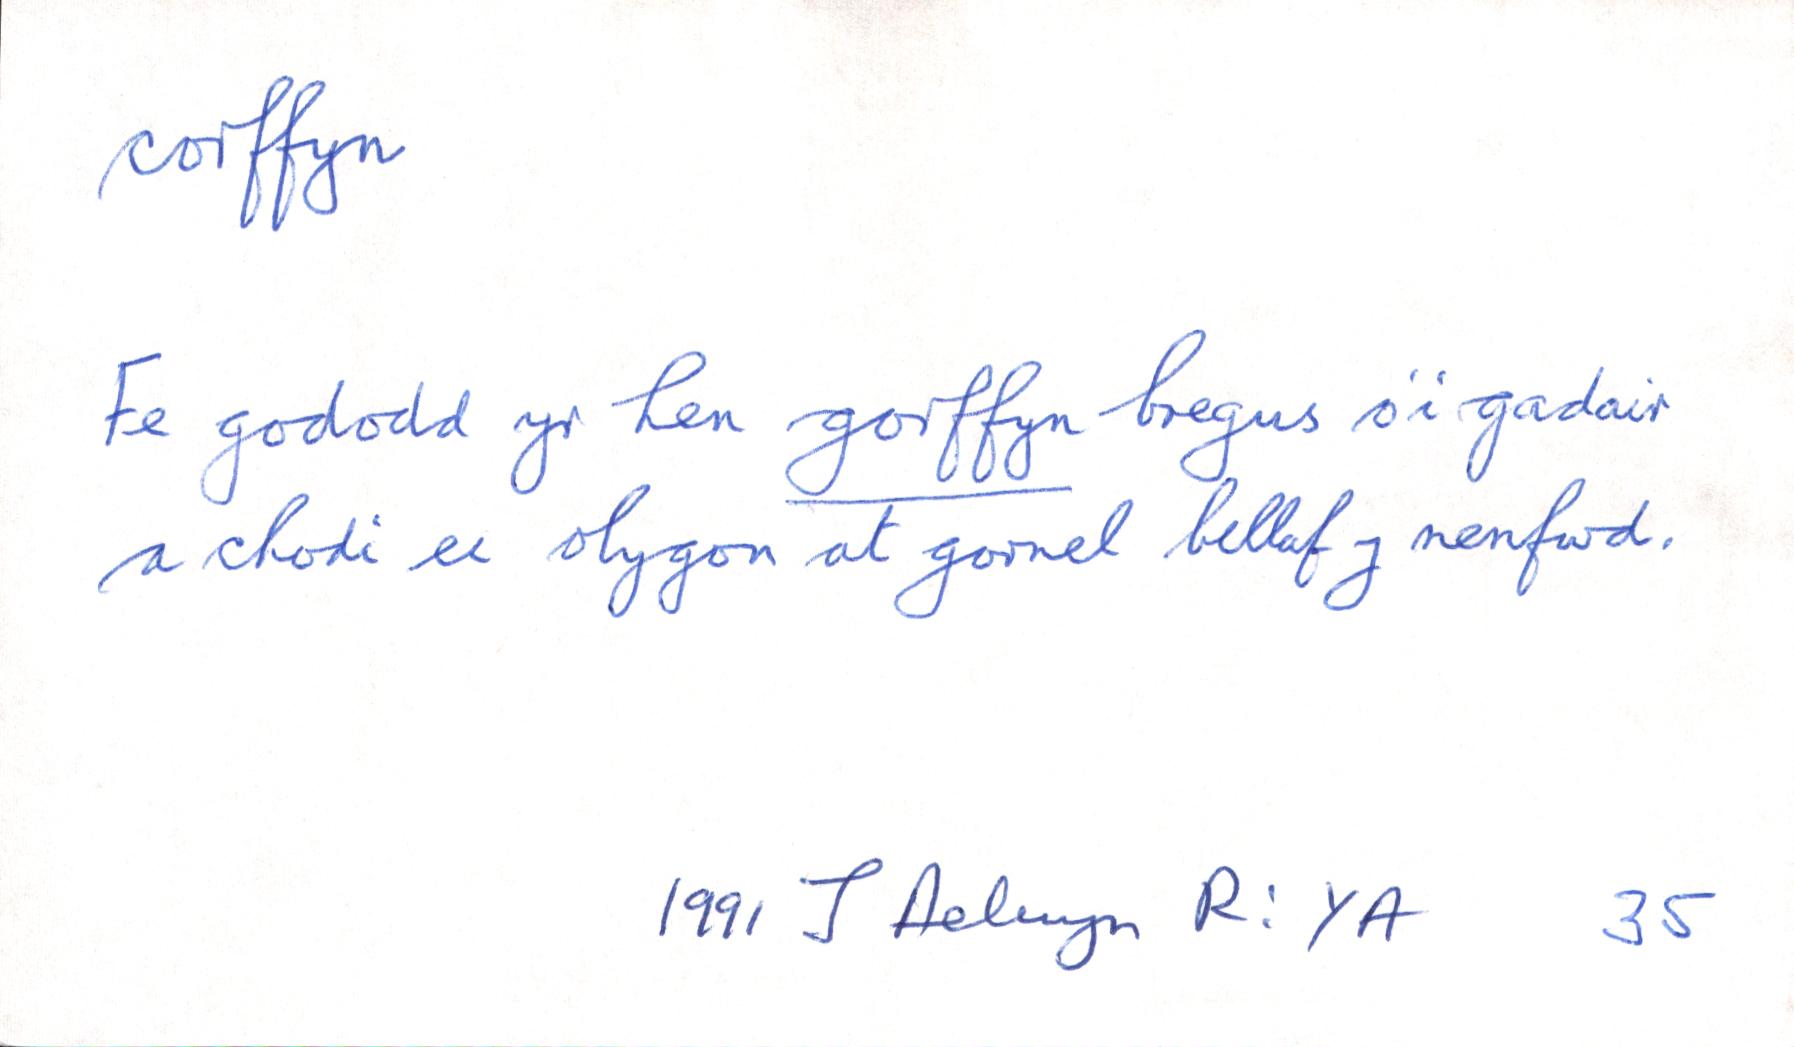 corffyn
Fe gododd yr hen gorffyn bregus o'i gadair
a chodi ei olygon at gornel bellaf y nenfwd.
1991 J Aelwyn R: YA 35